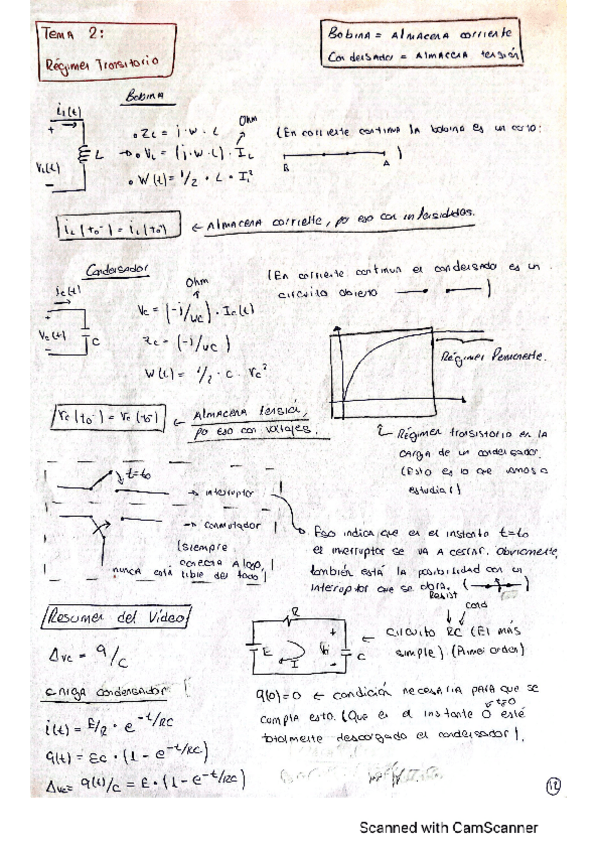 TEMA 2:
Régimen Transitorio
BOBINA = ALMACENA corriente
Condensador = ALMACENA tensión
BOBINA
iL(t)
+
L
VL(t)
-
Ohm
ZL = j·w·L
VL = (j·w·L)·IL
W(t) = 1/2·L·I²
(En corriente continua la bobina es un corto:
B
A
iL(to-) = iL(to+)
← ALMACENA corriente, por eso con intensidades.
Condensador
ic(t)
+
Vc(t)
C
-
Ohm
Vc = (-j/wc)·Ic(t)
Zc = (-j/wc)
W(t) = 1/2·C·Vc²
(En corriente continua el condensador es un
circuito abierto
Régimen Permanente.
Vc(to-) = Vc(to+)
← ALMACENA tensión,
por eso con voltajes.
Régimen transitorio en la
carga de un condensador.
(Esto es lo que vamos a
estudiar)
t=to
→ interruptor
→ conmutador
(siempre
conecta a algo,
nunca está libre del todo)
Eso indica que en el instante t=to
el interruptor se va a cerrar. Obviamente,
también está la posibilidad con un
interruptor que se abra.
Resist
cond
Resumen del Vídeo
Δvc = q/c
R
E
I
+
-
C
← circuito RC (El más
simple). (Primer orden)
carga condensador
i(t) = E/R · e^-t/RC
q(t) = EC · (1 - e^-t/RC)
Δvc = q(t)/c = E · (1 - e^-t/RC)
q(0)=0 ← condición necesaria para que se
t=0
cumpla esto. (Que en el instante 0 esté
totalmente descargado el condensador).
12
Scanned with CamScanner